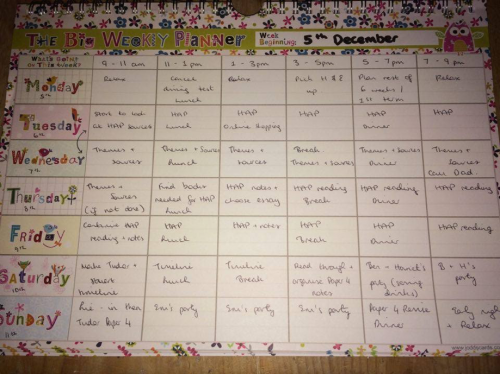 The Big Weekly Planner
Week
Beginning: 5th December
What's Going
On This Week?
9 - 11 am
11 - 1pm
1 - 3pm
3 - 5pm
5 - 7pm
7 - 9pm
Monday
5th
Relax
Cancel
driving test
Lunch
Relax
Pick H & E
up
Plan rest of
6 weeks /
1st term
Relax
Tuesday
6th
Start to look
at HAP sources
HAP
Lunch
HAP
Online shopping
HAP
HAP
Dinner
HAP
Wednesday
7th
Themes +
sources
Themes + Sources
Lunch
Themes +
sources
Break
Themes + sources
Themes + sources
Dinner
Themes +
sources
Call Dad
Thursday
8th
Themes +
Sources
(if not done)
Find books
needed for HAP
Lunch
HAP notes +
choose essay
HAP reading
Break
HAP reading
Dinner
HAP reading
Friday
9th
Continue HAP
reading + notes
HAP
Lunch
HAP + notes
HAP
Break
HAP
Dinner
HAP reading
Saturday
10th
Make Tudor +
Stuart
timeline
Timeline
Lunch
Timeline
Break
Read through +
organise Paper 4
notes
Ben + Harriet's
party (serving
drinks)
B + H's
party
Sunday
11th
Lie-in then
Tudor Paper 4
party
party
party
Paper 4
Dinner
Tidy
+ Relax